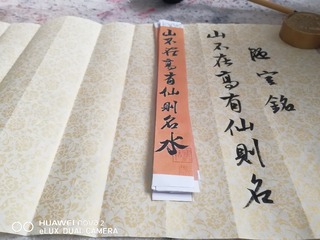 陋室銘
山不在高有仙則名
山不在高有仙則名水
HUAWEI nova 2
eLUX DUAL CAMERA